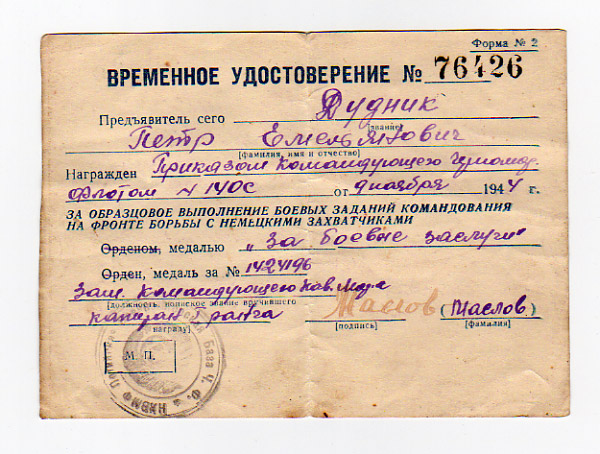 Форма № 2
ВРЕМЕННОЕ УДОСТОВЕРЕНИЕ № 76426
Предъявитель сего Дудник
[звание]
Петр Емельянович
[фамилия, имя и отчество]
Награжден Приказом Командующего Черномор.
Флотом № 140с от 9 ноября 1944 г.
ЗА ОБРАЗЦОВОЕ ВЫПОЛНЕНИЕ БОЕВЫХ ЗАДАНИЙ КОМАНДОВАНИЯ
НА ФРОНТЕ БОРЬБЫ С НЕМЕЦКИМИ ЗАХВАТЧИКАМИ
Орденом, медалью „За боевые заслуги"
Орден, медаль за № 1424196
Зам. Командующего Кав. Мор.
[должность, воинское звание вручившего
капитан ранга Маслов (Маслов)
награду] [подпись] [фамилия]
М П.
База Ч. Ф. НКВМФ